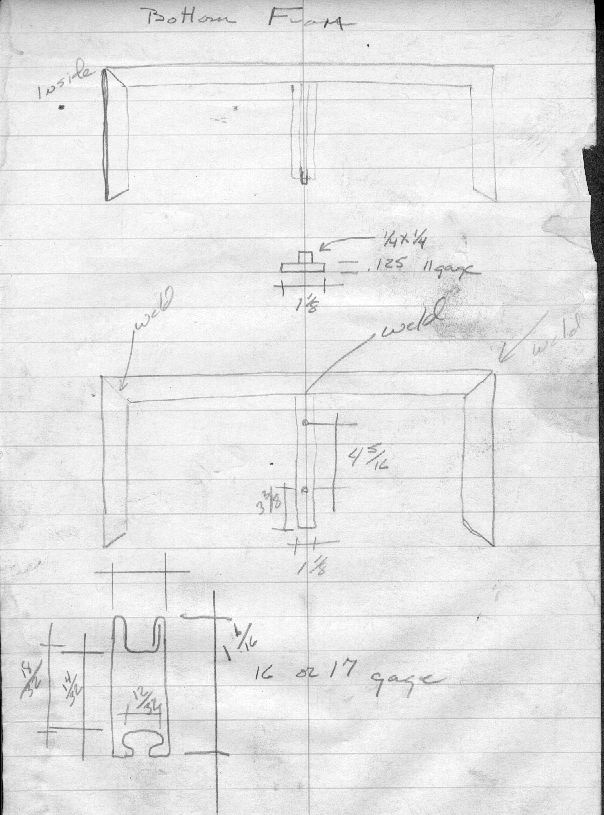 Bottom
Inside
1/4 x 1/4
.125 11 gage
1 1/8
weld
weld
weld
4 5/16
3 3/8
1 1/8
1 1/16
16 or 17 gage
14/32
12/32